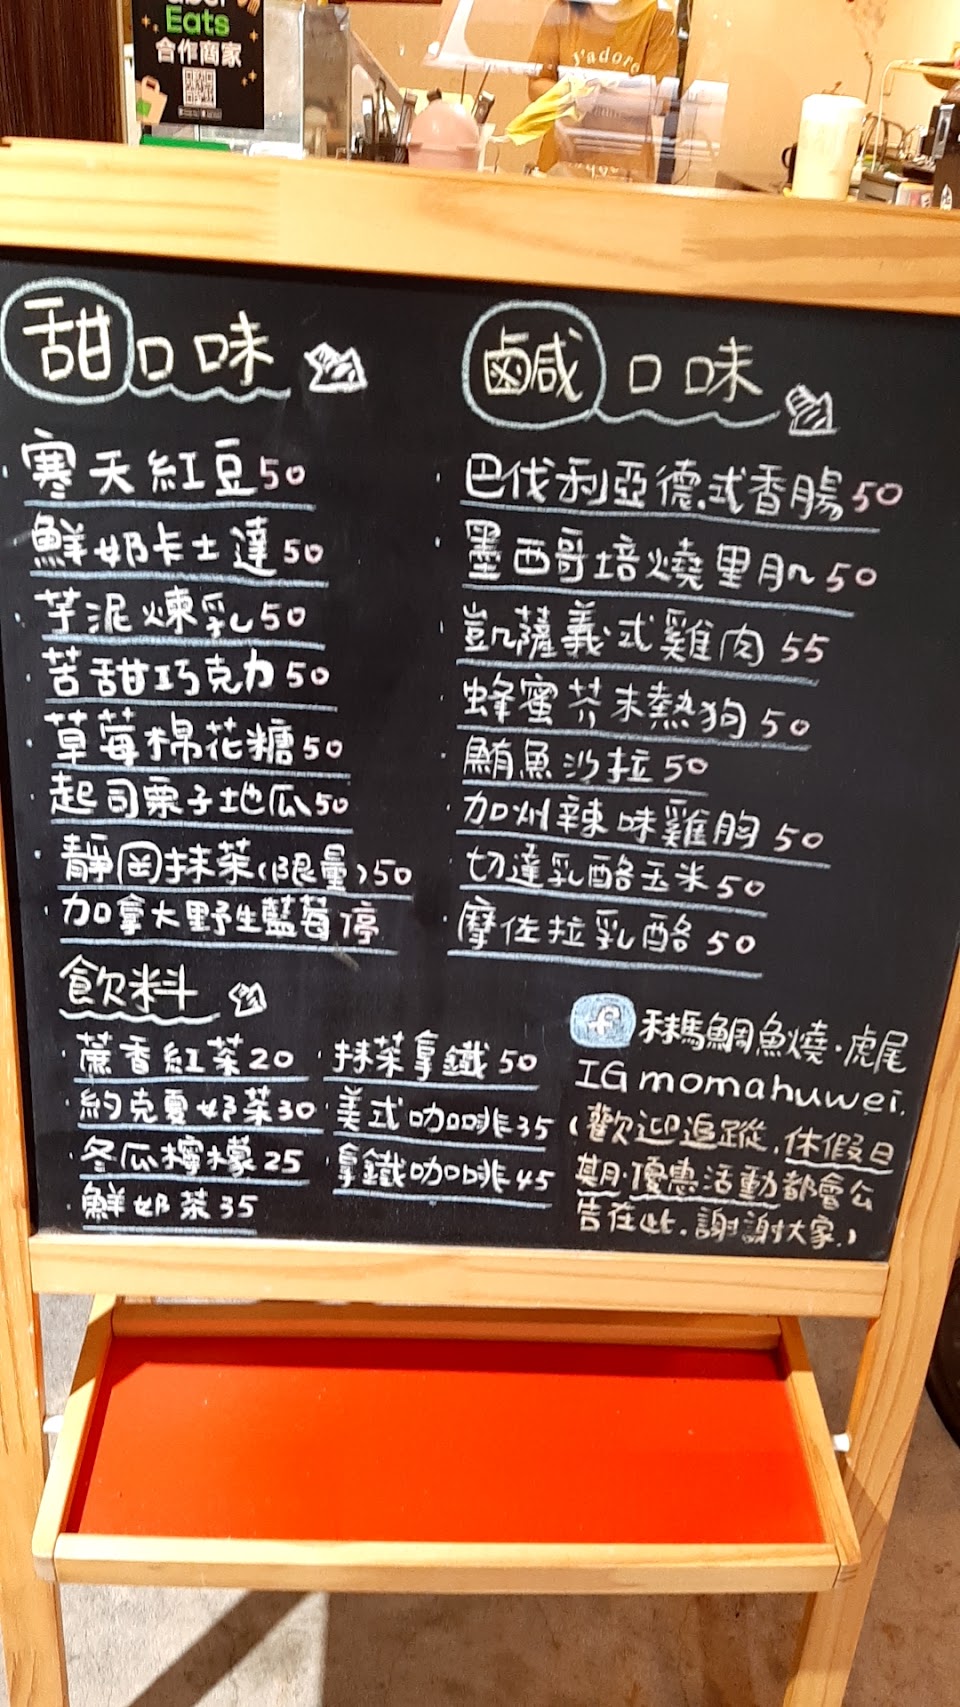 Uber
Eats
合作商家
J'adore
甜口味
寒天紅豆50
鮮奶卡士達50
芋泥煉乳50
苦甜巧克力50
草莓棉花糖50
起司栗子地瓜50
靜岡抹茶(限量)50
加拿大野生藍莓 停
鹹口味
巴伐利亞德式香腸50
墨西哥培燒里肌50
凱薩義式雞肉 55
蜂蜜芥末熱狗50
鮪魚沙拉50
加州辣味雞胸50
切達乳酪玉米50
摩佐拉乳酪50
飲料
蔗香紅茶20
約克夏奶茶30
冬瓜檸檬25
鮮奶茶35
抹茶拿鐵50
美式咖啡35
拿鐵咖啡45
f 秣馬鯛魚燒·虎尾
IG momahuwei.
(歡迎追蹤,休假日
期·優惠活動都會公
告在此.謝謝大家.)